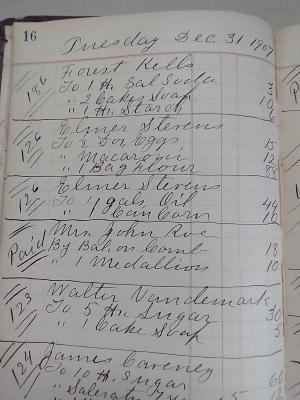 16
Tuesday Dec. 31 1907
186 Forest Kells
To 1 lb. Sal Soda 3
" 2 Cakes Soap 10
" 1 lb. Starch 6
126 Elmer Stevens
To ½ Doz Eggs 15
" Macaroni 12
" 1 Bag Flour 88
126 Elmer Stevens
To 4 gals. Oil 44
" Can Corn 10
Paid Mrs. John Roe
By Bal. on Comb 18
" 1 Medallion 10
123 Walter Vandemark
To 5 lb. Sugar 30
" 1 Cake Soap 5
124 James Caveney
To 10 lb. Sugar 60
" Saleratus